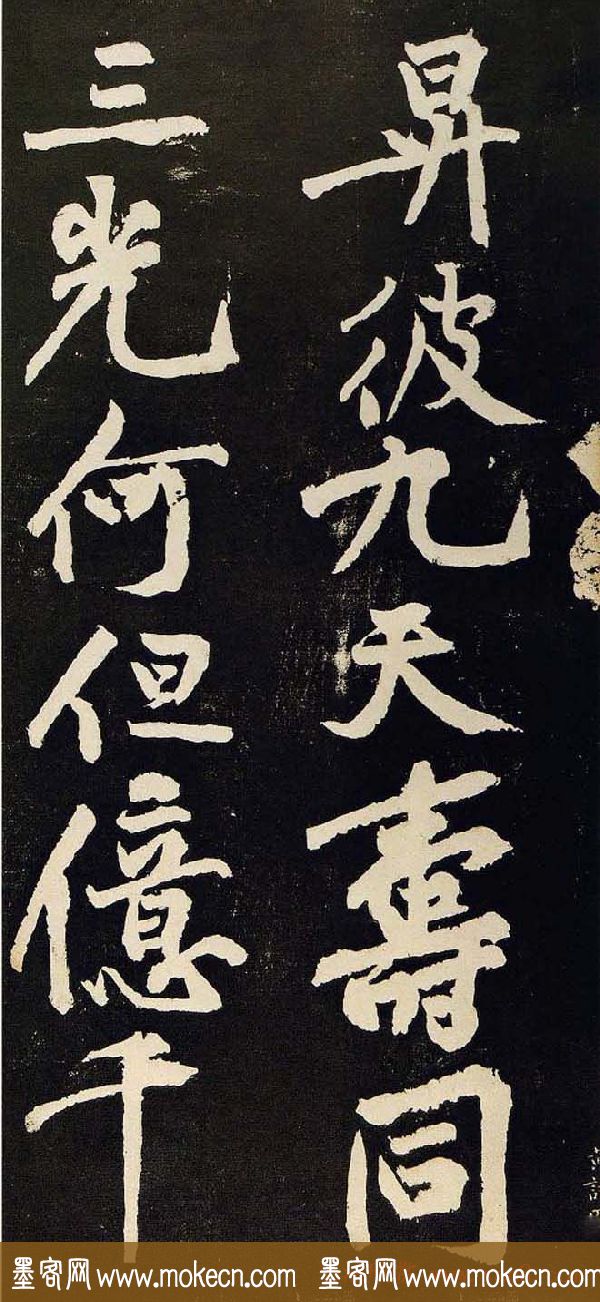 昇彼九天壽同
三光何但億千
墨客网 www.mokecn.com 墨客网 www.mokecn.com